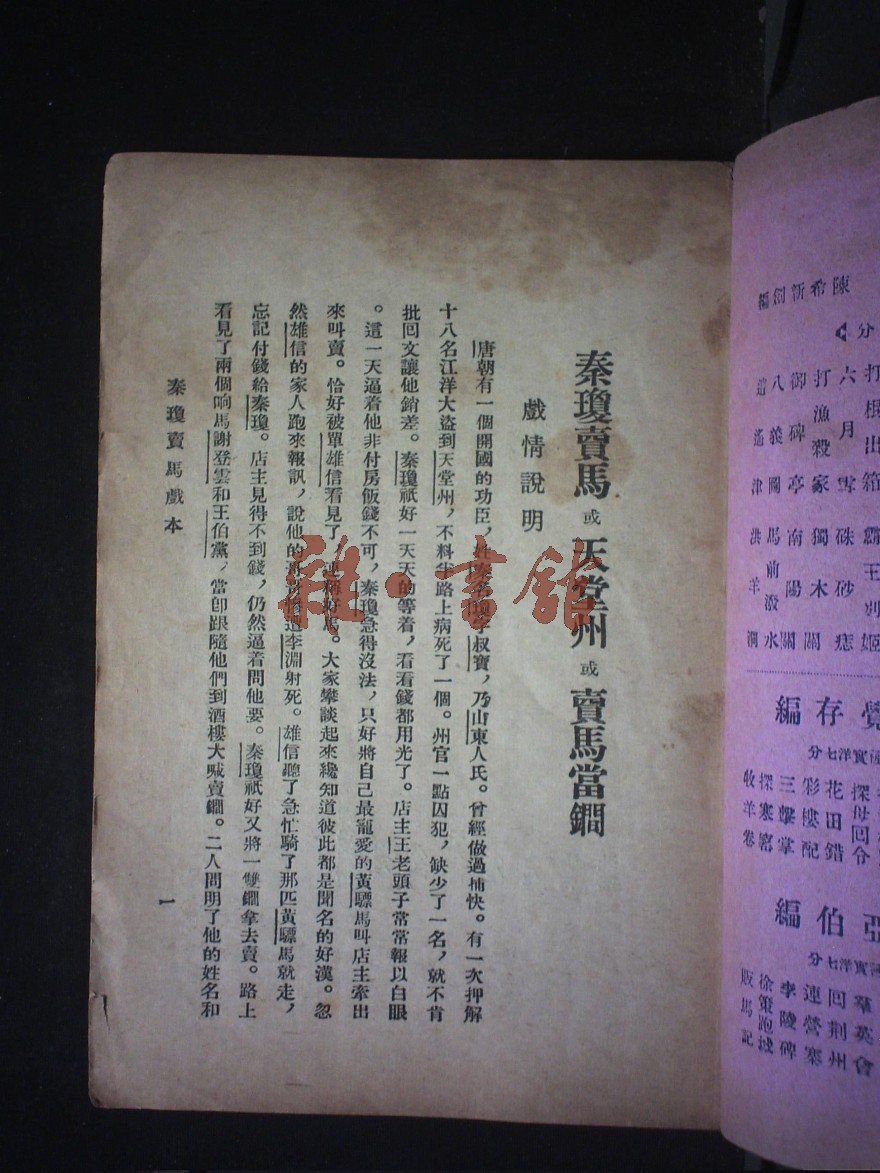 秦瓊賣馬 或 天堂州 或 賣馬當鐧
戲情說明
唐朝有一個開國的功臣，姓秦名瓊字叔寶，乃山東人氏。曾經做過捕快。有一次押解
十八名江洋大盜到天堂州，不料半路上病死了一個。州官一點囚犯，缺少了一名，就不肯
批回文讓他銷差。秦瓊祇好一天天的等着，看看錢都用光了。店主王老頭子常常報以白眼
。這一天逼着他非付房飯錢不可，秦瓊急得沒法，只好將自己最寵愛的黃驃馬叫店主牽出
來叫賣。恰好被單雄信看見了，連稱好馬。大家攀談起來纔知道彼此都是聞名的好漢。忽
然雄信的家人跑來報訊，說他的哥哥慘遭李淵射死。雄信聽了急忙騎了那匹黃驃馬就走，
忘記付錢給秦瓊。店主見得不到錢，仍然逼着問他要。秦瓊祇好又將一雙鐧拿去賣。路上
看見了兩個响馬謝登雲和王伯黨，當卽跟隨他們到酒樓大喊賣鐧。二人問明了他的姓名和
秦瓊賣馬戲本
一
雜·書館
陳希新創編
分
打棍出箱 霸王別姬
六月雪 硃砂痣
打漁殺家 獨木關
御碑亭 南陽關
八義圖 馬前潑水
逍遙津 洪羊洞
覺存編
實洋七分
探母回令
花田錯
彩樓配
三擊掌
探寒窰
牧羊卷
亞伯編
實洋七分
羣英會
回荆州
連營寨
李陵碑
徐策跑城
販馬記